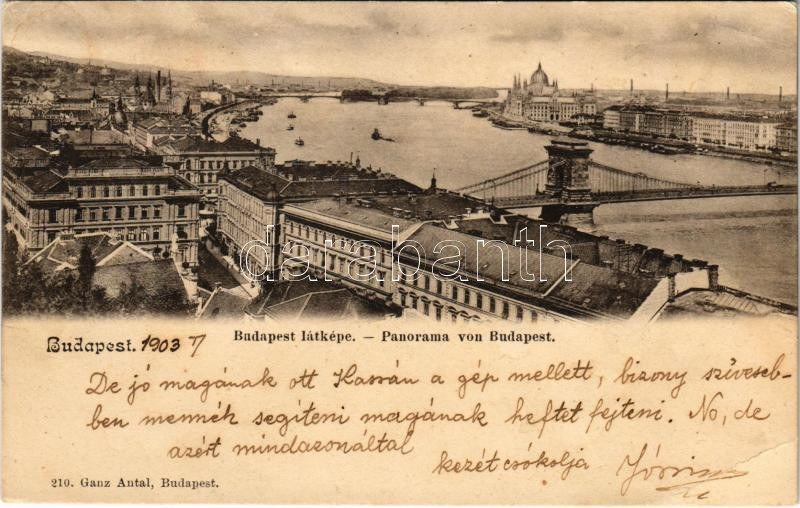 darabanth
Budapest. 1903 7/
Budapest látképe. – Panorama von Budapest.
De jó magának ott Kassán a gép mellett, bizony szíveseb-
ben mennék segíteni magának heftet fejteni. No, de
azért mindazonáltal
kezét csókolja
210. Ganz Antal, Budapest.